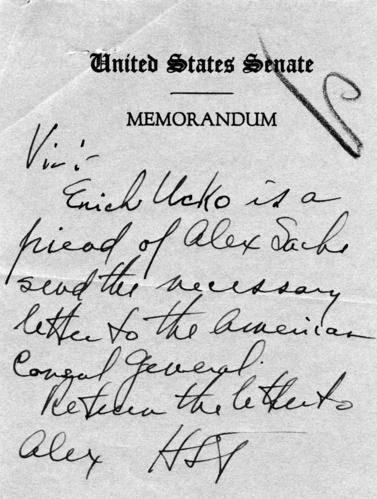 United States Senate
MEMORANDUM
Vic:-
Erich Ucko is a
friend of Alex Sachs
send the necessary
letter to the American
Consul General.
Return the letter to
Alex HST